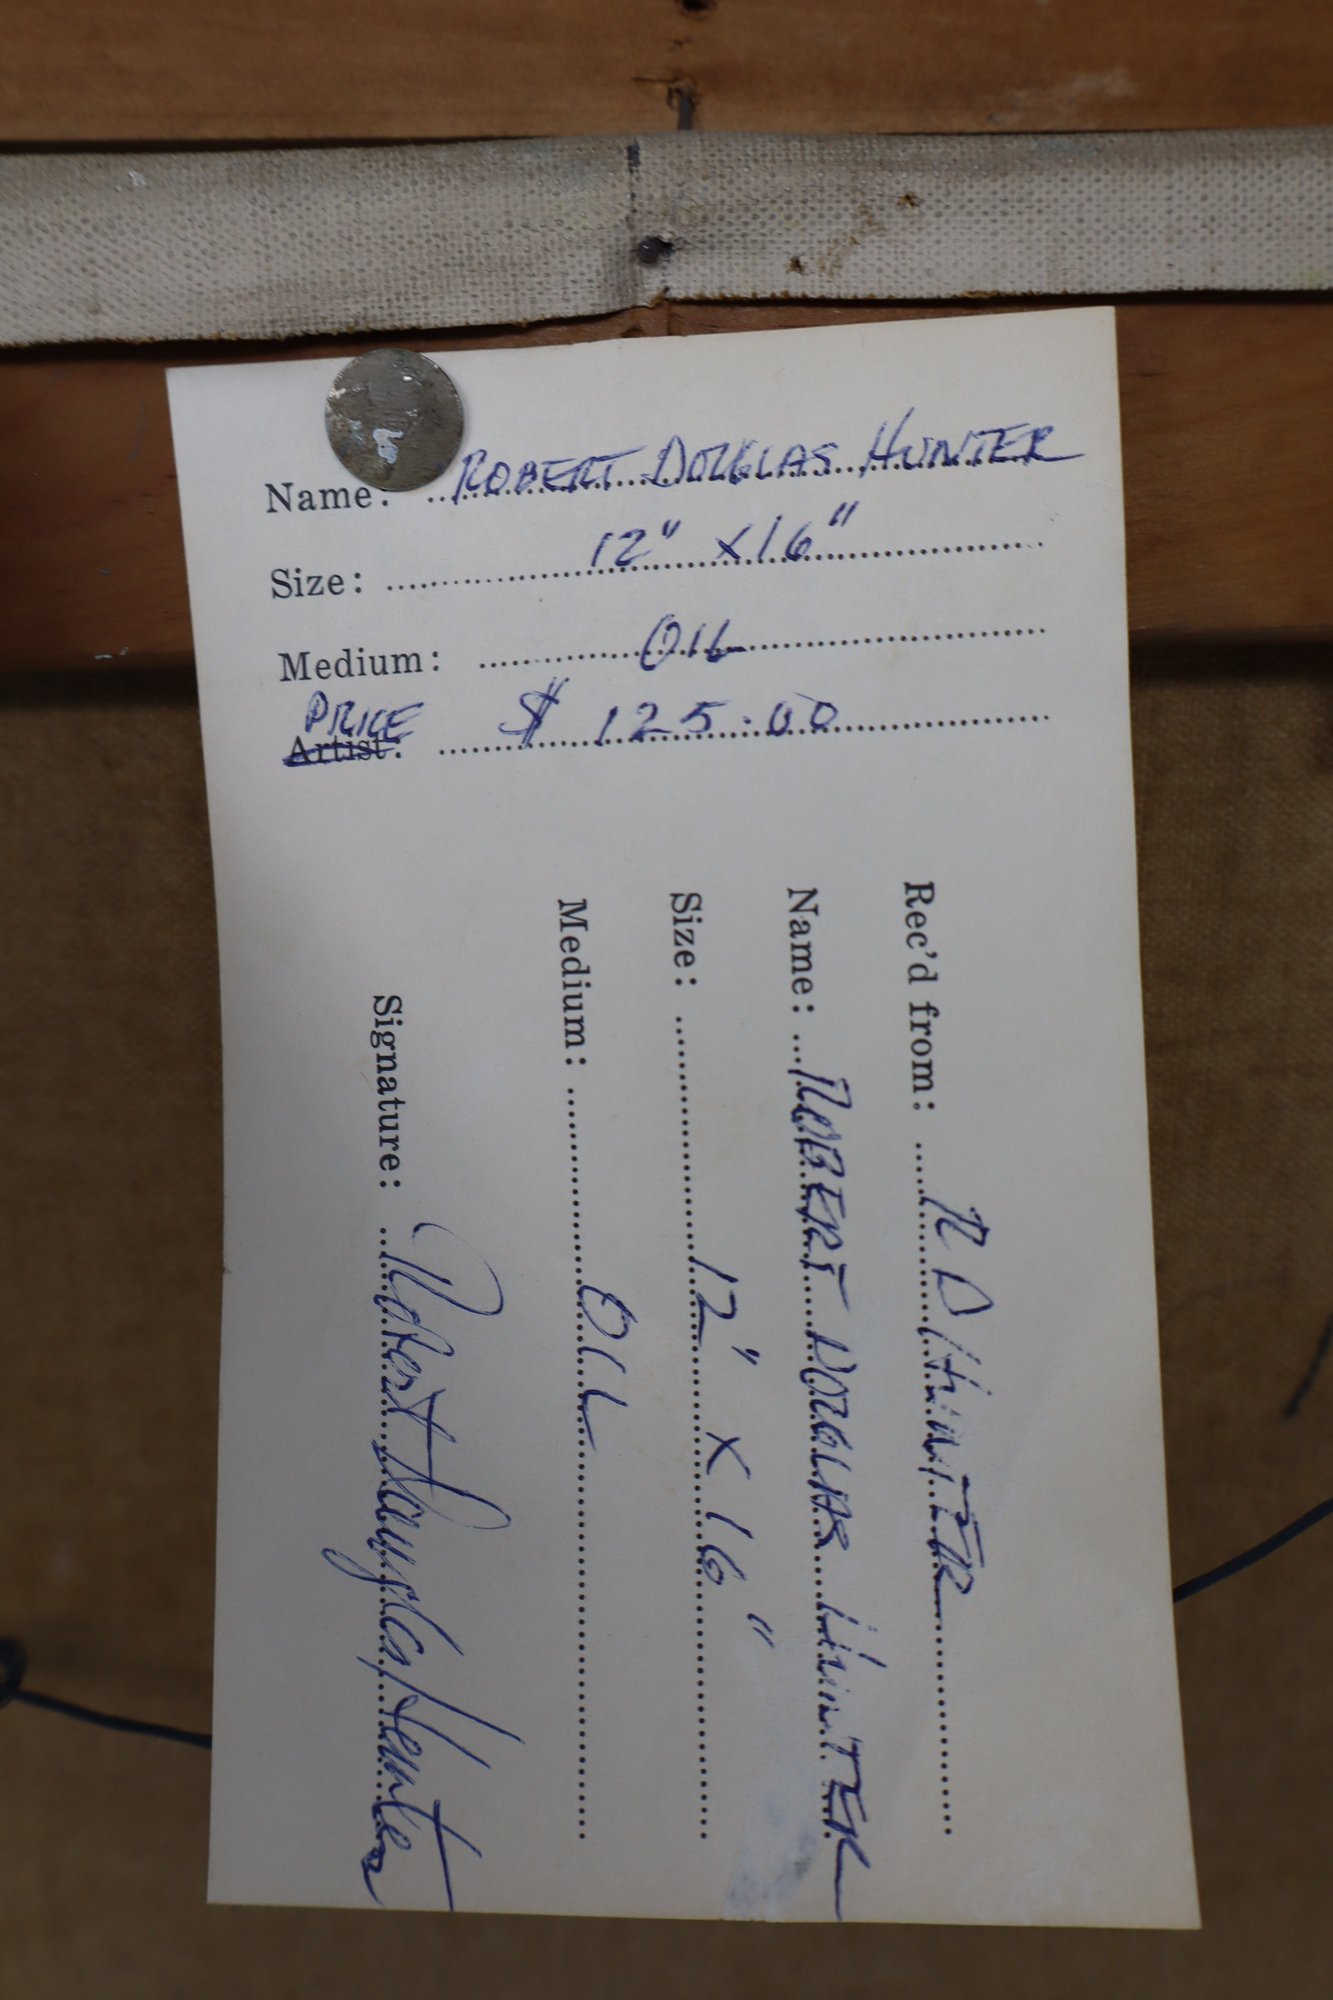 Name: ROBERT DOUGLAS HUNTER
Size: 12" x 16"
Medium: OIL
PRICE
Artist: $ 125.00
Rec'd from: R D HUNTER
Name: ROBERT DOUGLAS HUNTER
Size: 12" x 16"
Medium: OIL
Signature: Robert Douglas Hunter